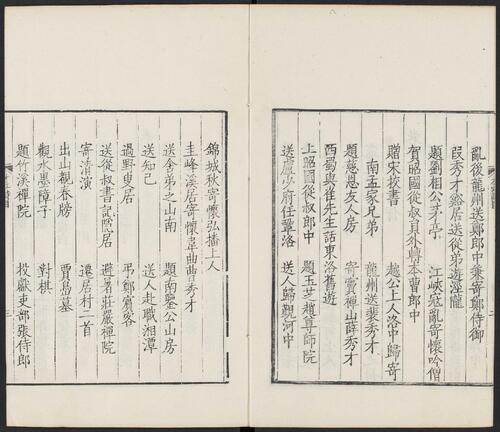 亂後龍州送鄭郎中兼寄鄭侍御
段秀才谿居送從弟遊涇隴
題劉相公茅亭 江峽寇亂寄懷吟僧
賀昭國從叔員外轉本曹郎中
贈宋校書 越公上人洛中歸寄
南孟家兄弟 龍州送裴秀才
題慈恩友人房 寄竇禪山薛秀才
西蜀與崔先生話東洛舊遊
上昭國從叔郎中 題玉芝趙尊師院
送盧少府任鞏洛 送人歸覲河中
錦城秋寄懷弘播上人
圭峰溪居寄懷韋曲曹秀才
送舍弟之山南 題南鑒公山房
送知己 送人赴職湘潭
過野叟居 弔鄭賓客
送從叔書記居 避暑莊嚴禪院
寄清演 遷居村二首
出山覩春牓 賈島墓
觀水墨障子 對棋
題竹溪禪院 投獻吏部張侍郎